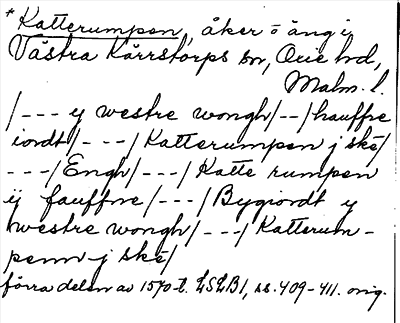 *Katterumpen, åker o äng i
Västra Kärrstorps sn, Oxie hd,
Malm. l.
/--- y westre wongh/--/hauffre
iordt/---/Katterumpen j ske/
---/Engh/---/Katte rumpen
ij fauffne/---/Bygiordt y
westre wongh/---/Katterum-
penn j ske/
förra delen av 1570-t. LSLB1, ss. 409-411. orig.